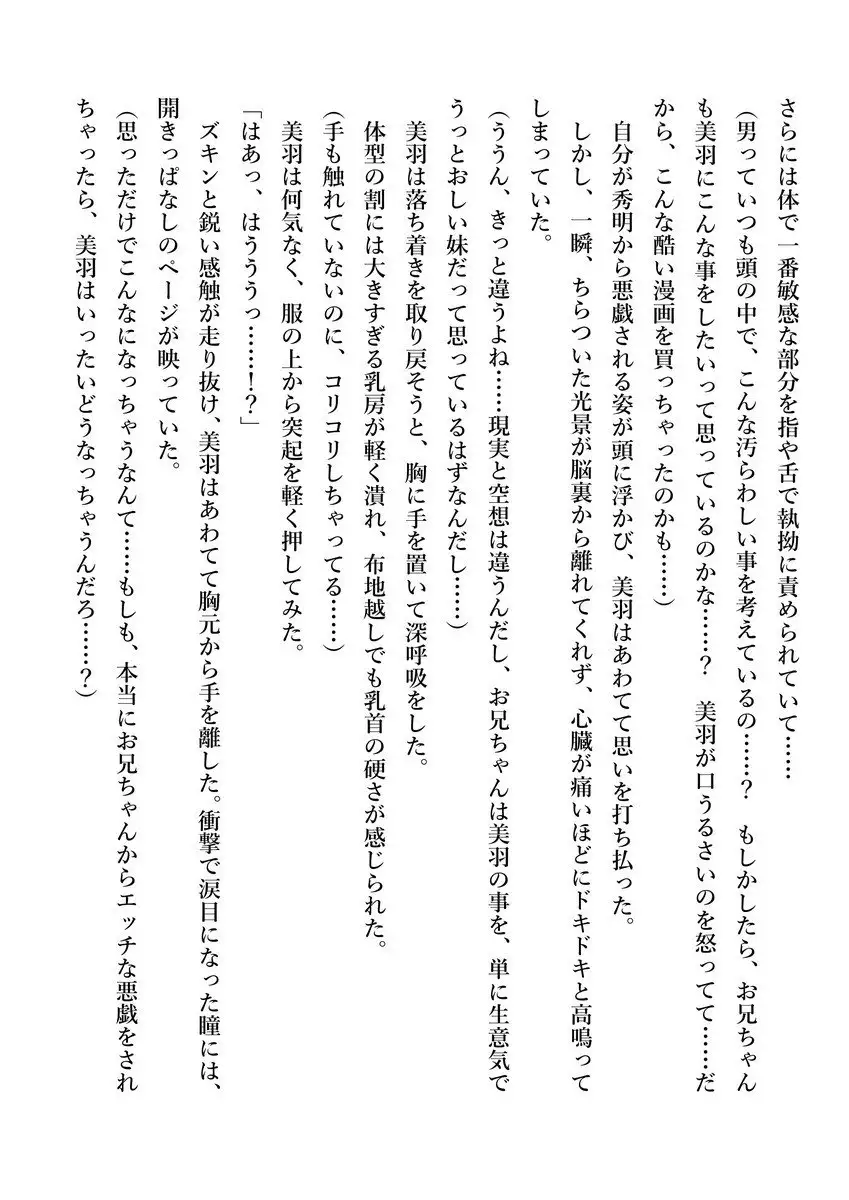 さらには体で一番敏感な部分を指や舌で執拗に責められていて……
(男っていつも頭の中で、こんな汚らわしい事を考えているの……？　もしかしたら、お兄ちゃん
も美羽にこんな事をしたいって思っているのかな……？　美羽が口うるさいのを怒ってて……だ
から、こんな酷い漫画を買っちゃったのかも……)
　自分が秀明から悪戯される姿が頭に浮かび、美羽はあわてて思いを打ち払った。
　しかし、一瞬、ちらついた光景が脳裏から離れてくれず、心臓が痛いほどにドキドキと高鳴って
しまっていた。
(ううん、きっと違うよね……現実と空想は違うんだし、お兄ちゃんは美羽の事を、単に生意気で
うっとおしい妹だって思っているはずなんだし……)
　美羽は落ち着きを取り戻そうと、胸に手を置いて深呼吸をした。
　体型の割には大きすぎる乳房が軽く潰れ、布地越しでも乳首の硬さが感じられた。
(手も触れていないのに、コリコリしちゃってる……)
　美羽は何気なく、服の上から突起を軽く押してみた。
「はあっ、はうううっ……！？」
　ズキンと鋭い感触が走り抜け、美羽はあわてて胸元から手を離した。衝撃で涙目になった瞳には、
開きっぱなしのページが映っていた。
(思っただけでこんなになっちゃうなんて……もしも、本当にお兄ちゃんからエッチな悪戯をされ
ちゃったら、美羽はいったいどうなっちゃうんだろ……？)